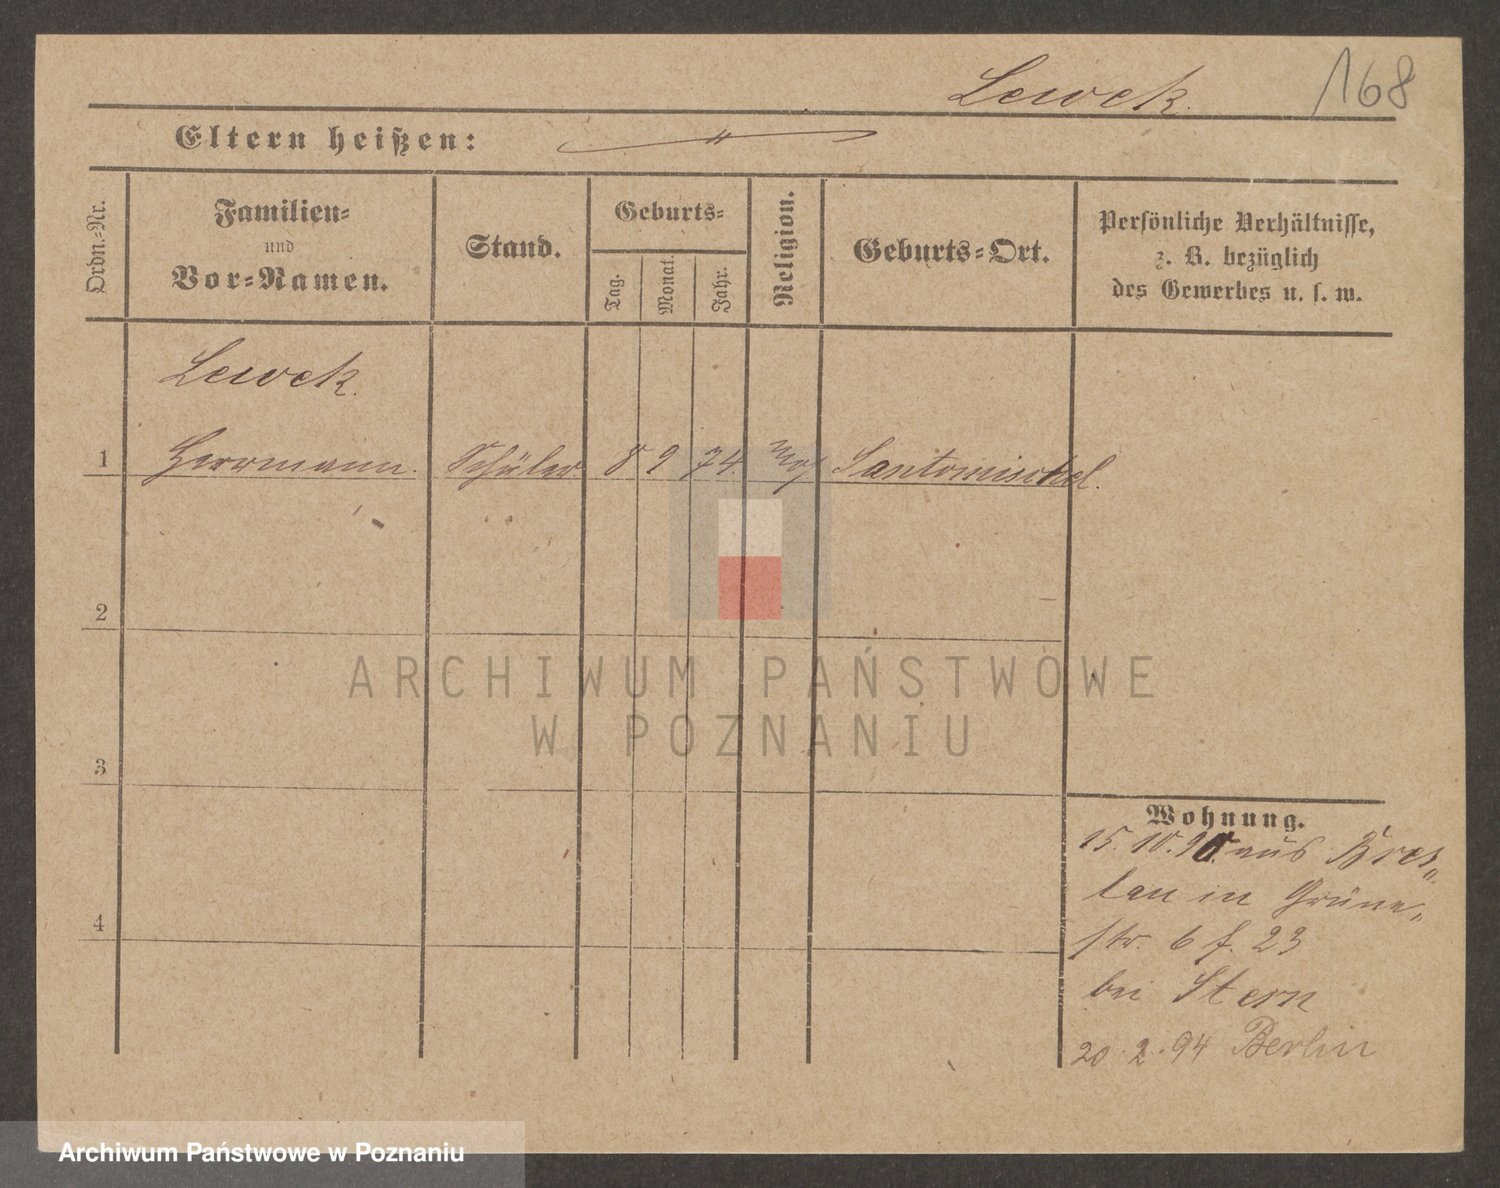 Lewek. 168
Eltern heißen: "
Ordn.=Nr.
Familien=
und
Vor=Namen.
Stand.
Geburts=
Tag.
Monat.
Jahr.
Religion.
Geburts=Ort.
Persönliche Verhältnisse,
z. B. bezüglich
des Gewerbes u. s. w.
Lewek.
1 Herrmann. Schüler 8 9 74. mos. Santomischel.
2
ARCHIWUM PAŃSTWOWE
W POZNANIU
3
Wohnung.
15. 10. 90 aus Bres„
lau in Grüne„
str. 6 f. 23
4
bei Stern
20.2.94 Berlin
Archiwum Państwowe w Poznaniu